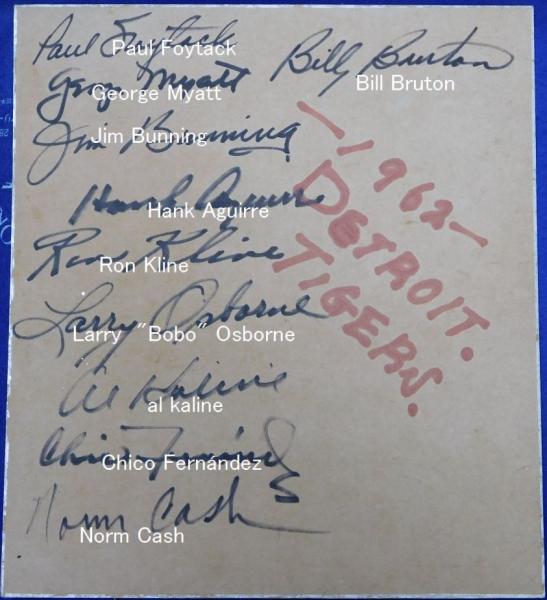 Paul Foytack
Paul Foytack
Bill Bruton
Bill Bruton
George Myatt
George Myatt
Jim Bunning
Jim Bunning
-1962-
DETROIT.
TIGERS.
Hank Aguirre
Hank Aguirre
Ron Kline
Ron Kline
Larry Osborne
Larry "Bobo" Osborne
Al Kaline
al kaline
Chico Fernández
Chico Fernández
Norm Cash
Norm Cash